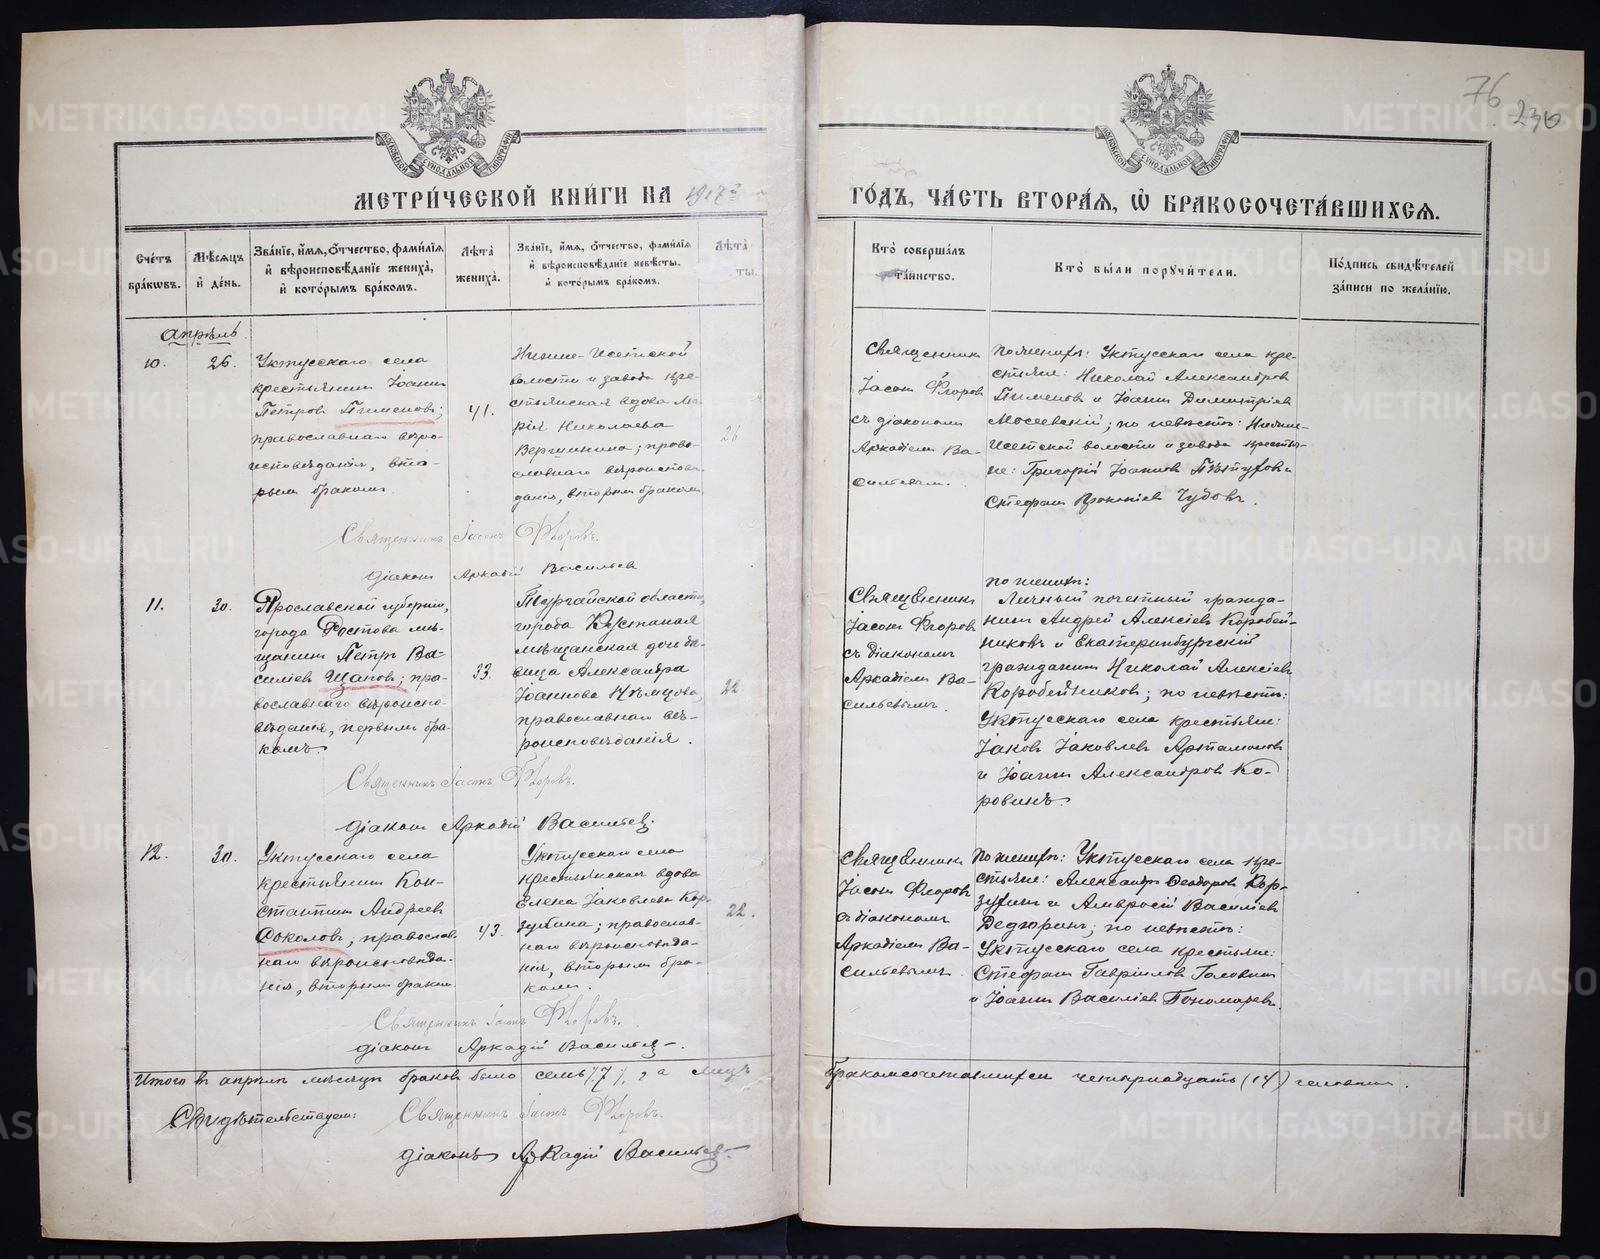 76
236
МЕТРИ́ЧЕСКОЙ КНИ́ГИ НА 1917 й
ГО́ДЪ, ЧА́СТЬ ВТОРА́Я, Ѡ БРАКОСОЧЕТА́ВШИХСЯ.
Сче́тъ бра́кѡвъ.
Мѣ́сѧцъ и҆ де́нь.
Зва́нїе, и҆́мѧ, ѻ҆́тчество, фами́лїѧ
и҆ вѣроисповѣ́данїе жениха̀,
и҆ кото́рымъ бра́комъ.
Лѣ́та жениха̀.
Зва́нїе, и҆́мѧ, ѻ҆́тчество, фами́лїѧ
и҆ вѣроисповѣ́данїе невѣ́сты,
и҆ кото́рымъ бра́комъ.
Лѣ́та
ты.
Кто̀ соверша́лъ та́инство.
Кто̀ бы́ли порꙋчи́тели.
По́дпись свидѣ́телей за́писи по жела́нїю.
Апрѣль
10.
26.
Уктусскаго села
крестьянинъ Іоаннъ
Петровъ Пименовъ;
православнаго вѣро-
исповѣданія, вто-
рымъ бракомъ.
41.
Нижне-Исетской
волости и завода кре-
стьянская вдова Ма-
рія Николаева
Вершинина; право-
славнаго вѣроиспове-
данія, вторымъ бракомъ.
26
Священникъ
Іасонъ Флоровъ
съ діакономъ
Аркадіемъ Ва-
сильевымъ.
По женихѣ: Уктусскаго села кре-
стьяне: Николай Александровъ
Пименовъ и Іоаннъ Димитріевъ
Мосеевскій; по невѣстѣ: Нижне-
Исетской волости и завода крестья-
не: Григорій Іоанновъ Пѣтуховъ и
Стефанъ Прокопіевъ Чудовъ.
Священникъ Іасонъ Флоровъ.
діаконъ Аркадій Васильевъ
11.
30.
Ярославской губерніи,
города Ростова мѣ-
щанинъ Петръ Ва-
силіевъ Щаповъ; пра-
вославнаго вѣроиспо-
вѣданія, первымъ бра-
комъ.
33.
Тургайской области,
города Кустаная
мѣщанская дочь дѣ-
вица Александра
Іоаннова Нѣмцова,
православнаго вѣ-
роисповѣданія.
22.
Священникъ
Іасонъ Флоровъ
съ діакономъ
Аркадіемъ Ва-
сильевымъ.
По женихѣ:
Личный почетный гражда-
нинъ Андрей Алексіевъ Коробей-
никовъ и Екатеринбургскій
гражданинъ Николай Алексіевъ
Коробейниковъ; по невѣстѣ:
Уктусскаго села крестьяне:
Іаковъ Іаковлевъ Артамоновъ
и Іоаннъ Александровъ Ко-
ровинъ.
Священникъ Іасонъ Флоровъ.
діаконъ Аркадій Васильевъ.
12.
30.
Уктусскаго села
крестьянинъ Кон-
стантинъ Андреевъ
Соколовъ; православ-
наго вѣроисповѣда-
нія, вторымъ бракомъ.
43.
Уктусскаго села
крестьянская вдова
Елена Іаковлева Кор-
зухина; православ-
наго вѣроисповѣда-
нія, вторымъ бра-
комъ.
22.
Священникъ
Іасонъ Флоровъ
съ діакономъ
Аркадіемъ Ва-
сильевымъ.
По женихѣ: Уктусскаго села кре-
стьяне: Александръ Ѳеодоровъ Кор-
зухинъ и Амвросій Василіевъ
Дедюринъ; по невѣстѣ:
Уктусскаго села крестьяне:
Стефанъ Гавріиловъ Головинъ
и Іоаннъ Василіевъ Пономаревъ.
Священникъ Іасонъ Флоровъ.
діаконъ Аркадій Васильевъ.
Итого въ апрѣлѣ мѣсяцѣ браковъ было семь /7/, а лицъ бракомсочетавшихся четырнадцать (14) человѣкъ.
Свидѣтельствуемъ: Священникъ Іасонъ Флоровъ.
діаконъ Аркадій Васильевъ